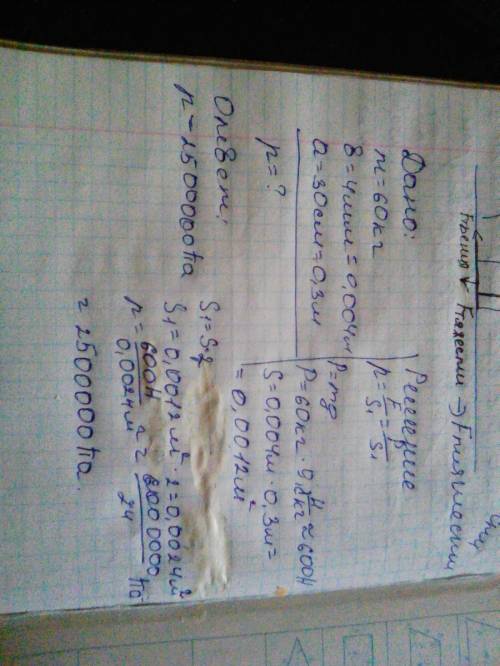 Fтрения Fтяжести → Fтяжести
Дано:
m = 60 кг
в = 4 мм = 0,004 м
a = 30 см = 0,3 м
p = ?
Решение
p = F/S₁ = P/S₁
P = mg
P = 60 кг · 9,8 Н/кг ≈ 600 Н
S = 0,004 м · 0,3 м =
= 0,0012 м²
S₁ = S · 2
S₁ = 0,0012 м² · 2 = 0,0024 м²
p = 600 Н / 0,0024 м² = 6000000 / 24 Па
= 2500000 Па.
Ответ:
p = 2500000 Па